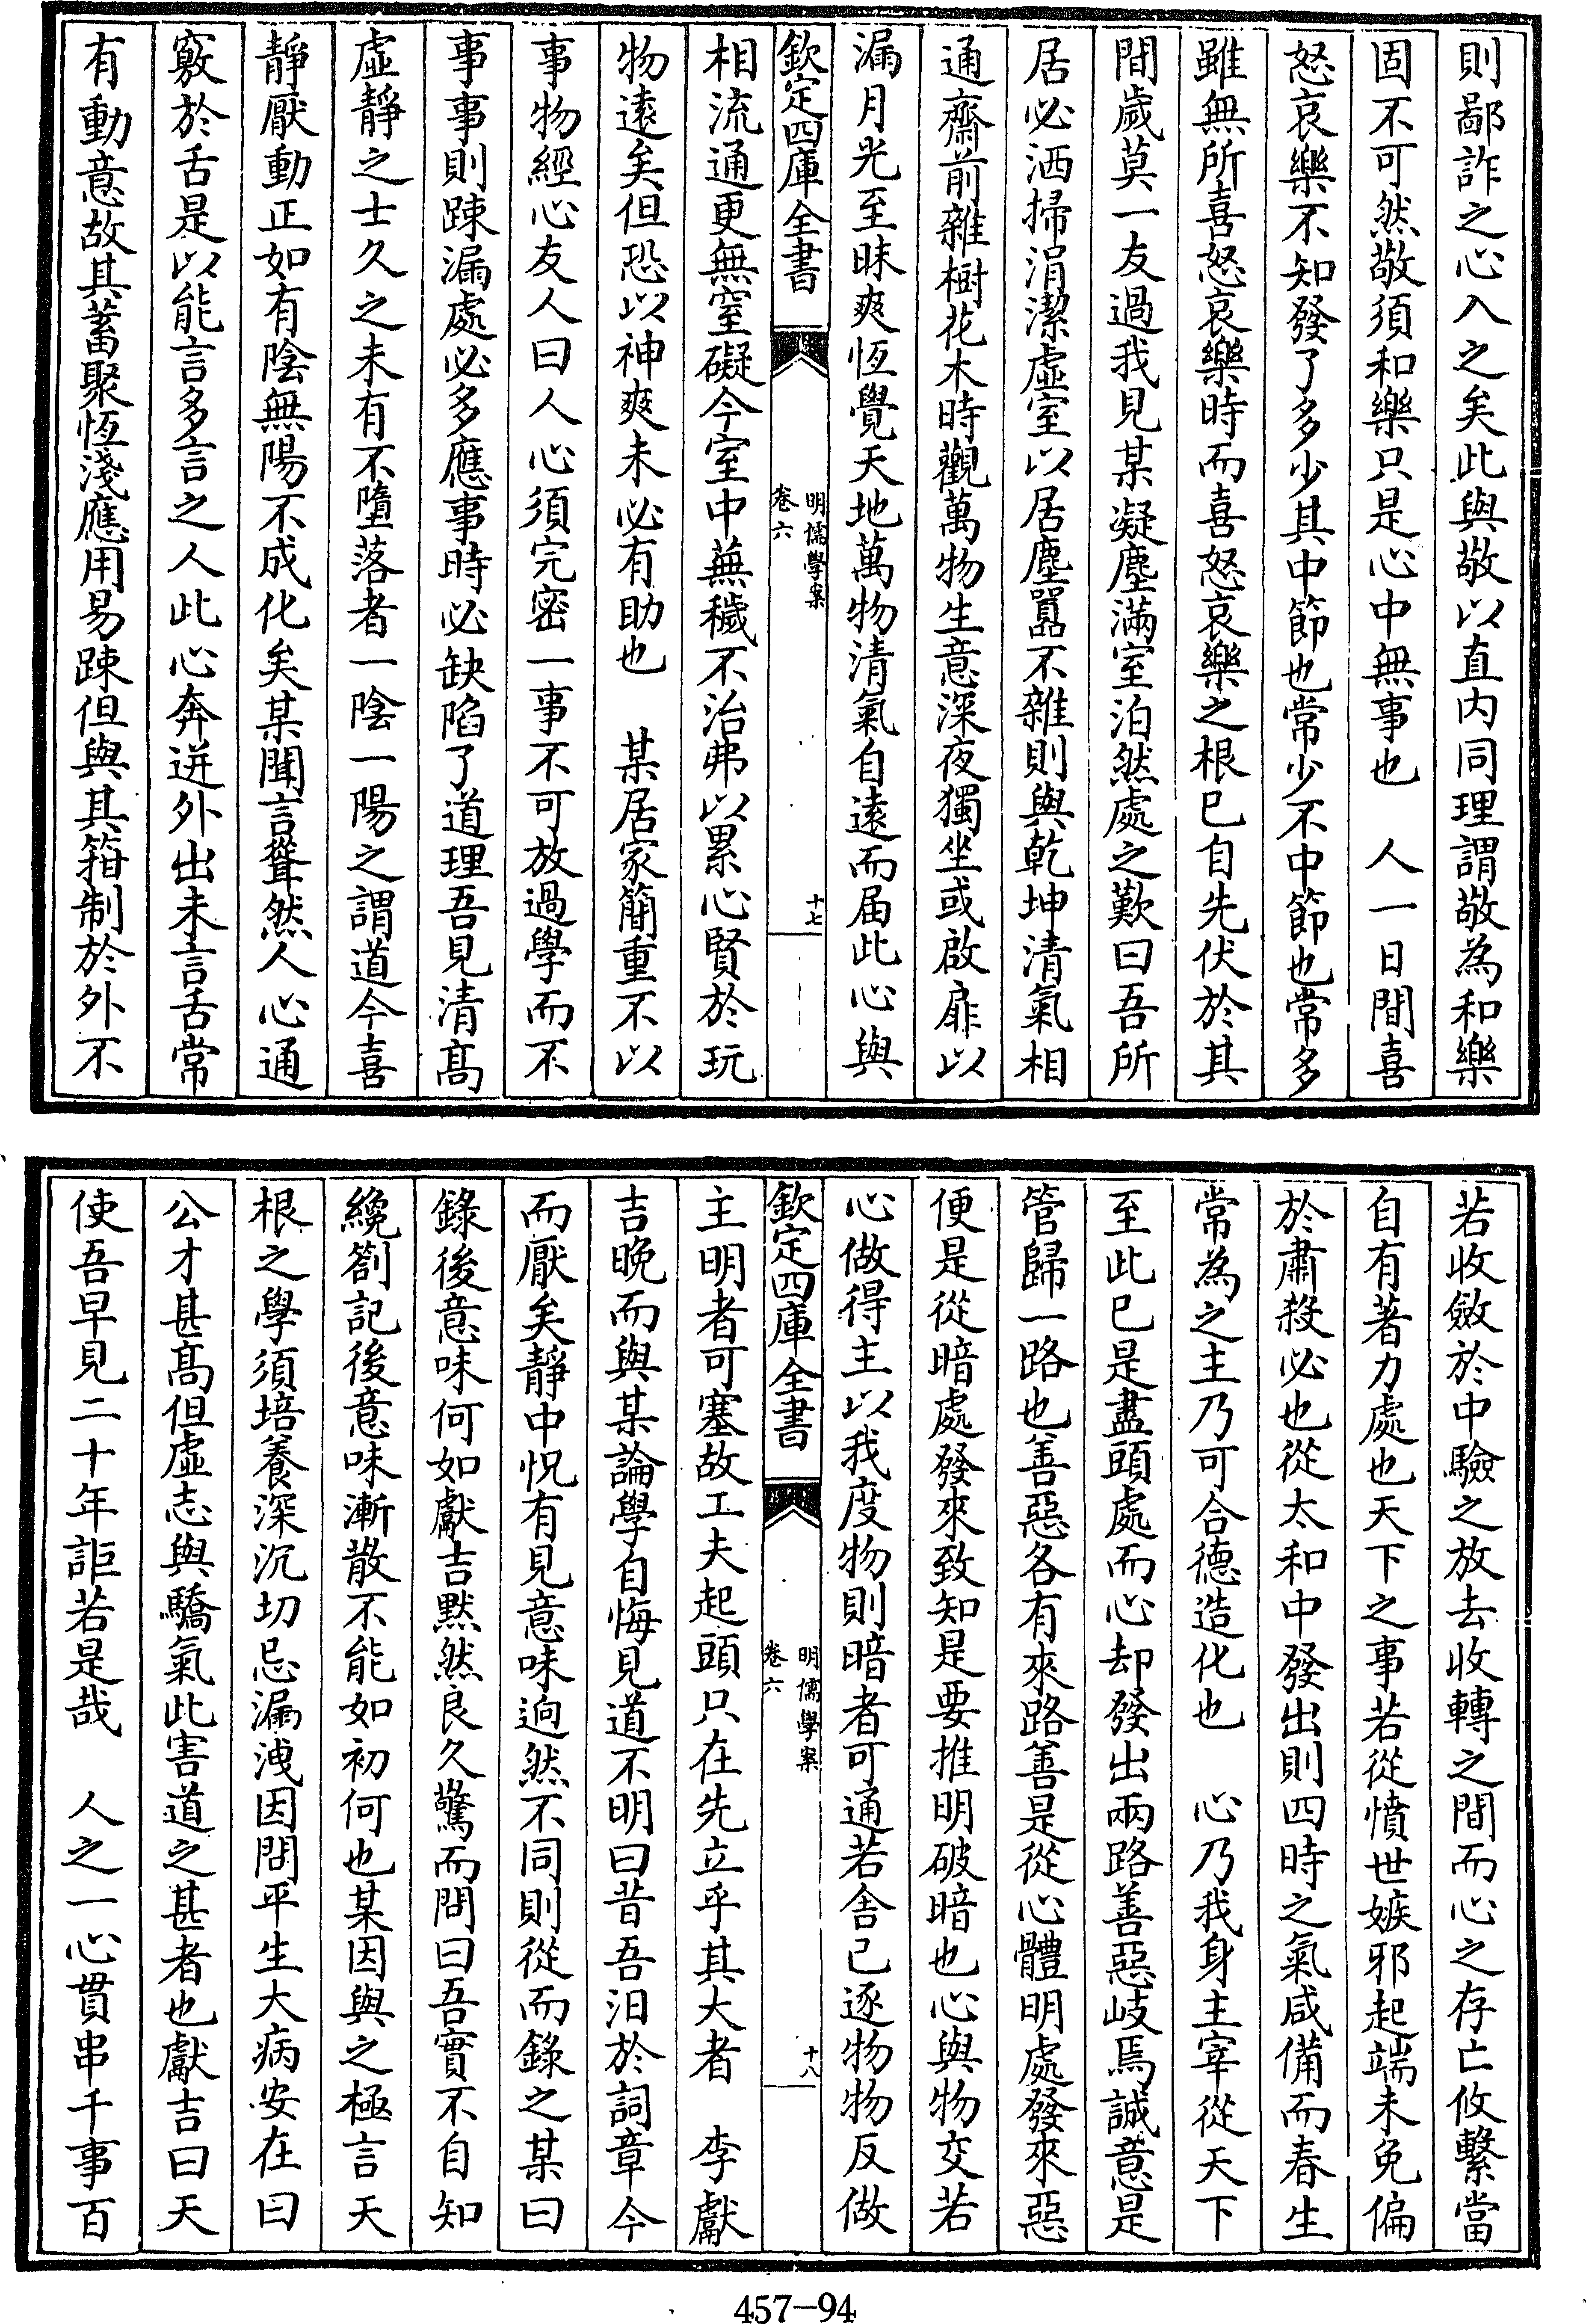 則鄙詐之心入之矣此與敬以直内同理謂敬為和樂
固不可然敬須和樂只是心中無事也　人一日間喜
怒哀樂不知發了多少其中節也常少不中節也常多
雖無所喜怒哀樂時而喜怒哀樂之根已自先伏於其
間歲莫一友過我見某凝塵滿室泊然處之歎曰吾所
居必洒掃涓潔虛室以居塵囂不雜則與乾坤清氣相
通齋前雜樹花木時觀萬物生意深夜獨坐或啟扉以
漏月光至昧爽恆覺天地萬物清氣自遠而届此心與
欽定四庫全書
明儒學案
卷六
十七
相流通更無窒礙今室中蕪穢不治弗以累心賢於玩
物遠矣但恐以神爽未必有助也　某居家簡重不以
事物經心友人曰人心須完密一事不可放過學而不
事事則踈漏處必多應事時必缺陷了道理吾見清高
虛靜之士久之未有不墮落者一陰一陽之謂道今喜
靜厭動正如有陰無陽不成化矣某聞言聳然人心通
竅於舌是以能言多言之人此心奔迸外出未言舌常
有動意故其蓄聚恆淺應用易踈但與其箝制於外不
若收斂於中驗之放去收轉之間而心之存亡攸繫當
自有著力處也天下之事若從憤世嫉邪起端未免偏
於肅殺必也從太和中發出則四時之氣咸備而春生
常為之主乃可合德造化也　心乃我身主宰從天下
至此已是盡頭處而心却發出兩路善惡岐焉誠意是
管歸一路也善惡各有來路善是從心體明處發來惡
便是從暗處發來致知是要推明破暗也心與物交若
心做得主以我度物則暗者可通若舍已逐物物反做
欽定四庫全書
明儒學案
卷六
十八
主明者可塞故工夫起頭只在先立乎其大者　李獻
吉晚而與某論學自悔見道不明曰昔吾汩於詞章今
而厭矣靜中怳有見意味逈然不同則從而錄之某曰
錄後意味何如獻吉默然良久驚而問曰吾實不自知
纔劄記後意味漸散不能如初何也某因與之極言天
根之學須培養深沉切忌漏洩因問平生大病安在曰
公才甚高但虛志與驕氣此害道之甚者也獻吉曰天
使吾早見二十年詎若是哉　人之一心貫串千事百
457-94